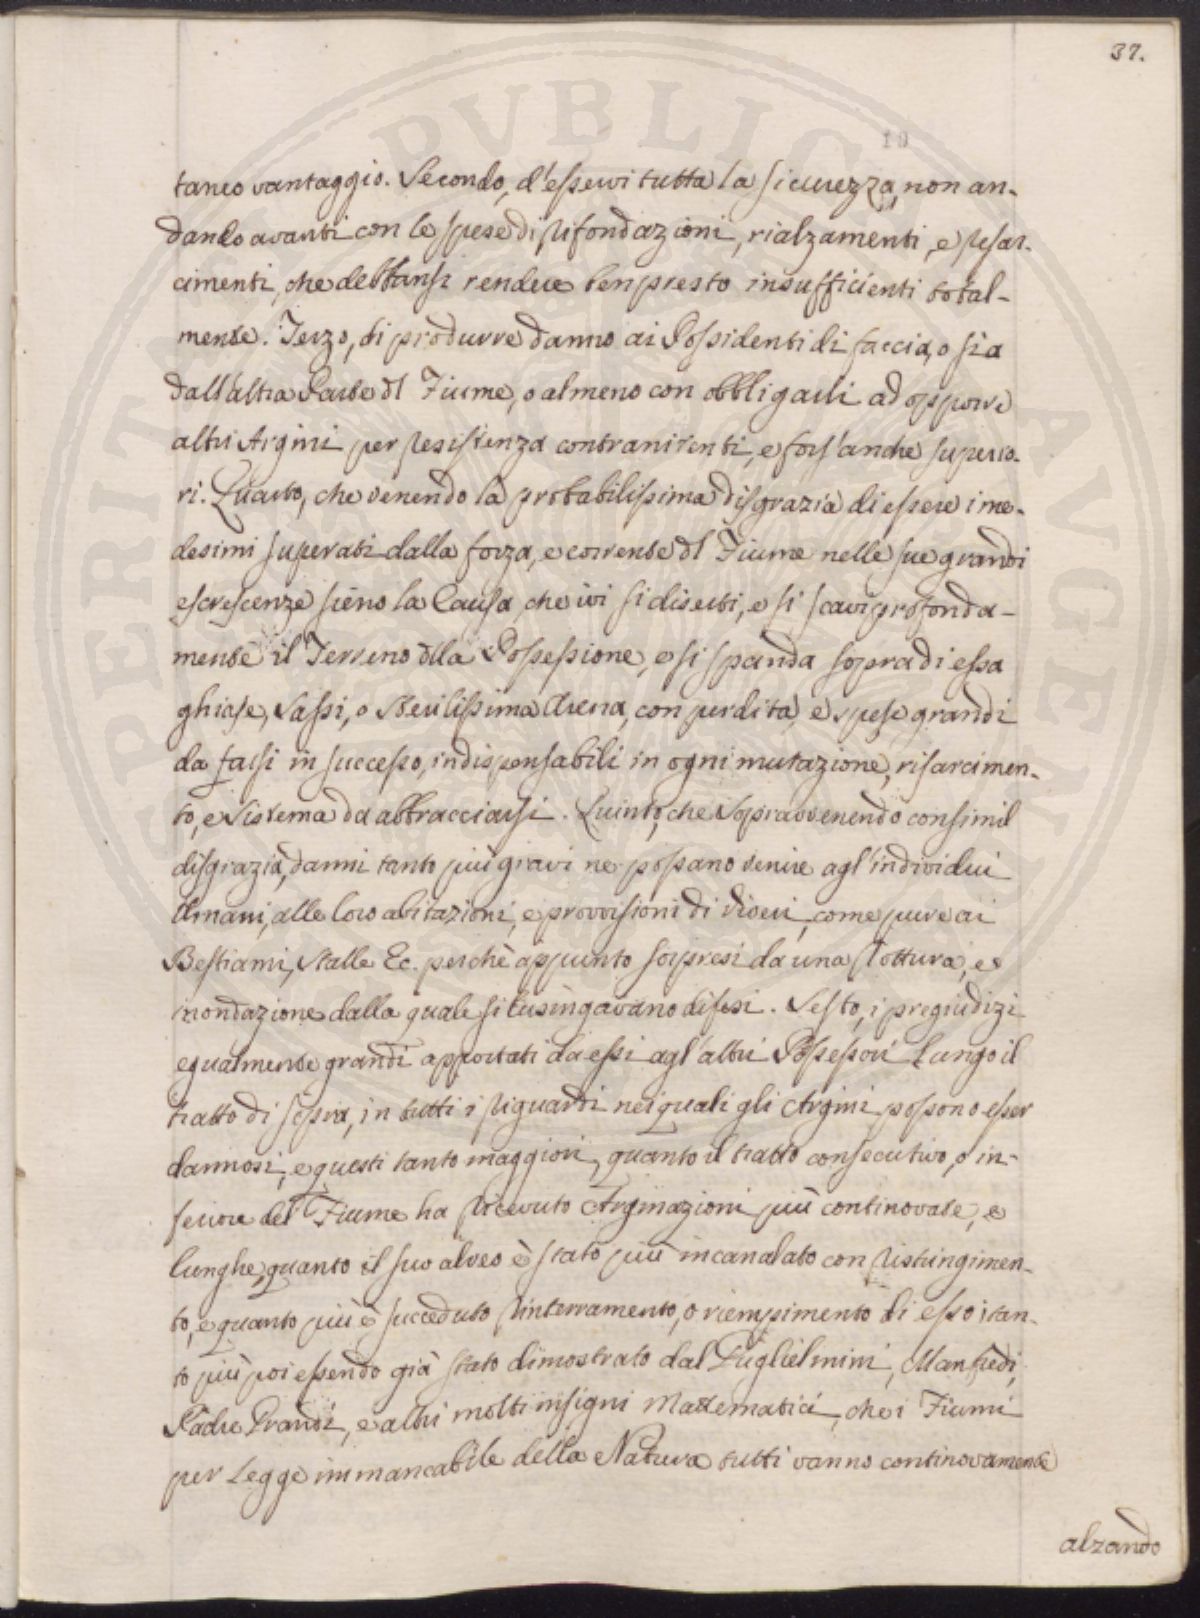 37.
10
taneo vantaggio. Secondo, d'esservi tutta la sicurezza, non an-
dando avanti con le spese di Rifondazioni, rialzamenti, e Resar-
cimenti, che debbansi rendere benpresto insufficienti total-
mente. Terzo, di produrre danno ai Possidenti di faccia, o sia
dall'altra Parte dl Fiume, o almeno con obbligarli ad opporre
altri Argini per Resistenza contranitenti, e fors'anche superio-
ri. Quarto, che venendo la probabilissima disgrazia di essere i me-
desimi superati dalla forza, e corrente dl Fiume nelle sue grandi
escrescenze sieno la Causa che ivi si diserti, e si scavi profonda-
mente il Terreno dlla Possessione, e si spanda sopra di essa
ghiase, Sassi, o Sterilissima Arena, con perdita, e spese grandi
da farsi in successo, indispensabili in ogni mutazione, risarcimen-
to, e Sistema da abbracciarsi. Quinto, che Sopravvenendo consimil
disgrazia, danni tanto più gravi ne possano venire agl'individui
Umani, alle loro abitazioni, e provvisioni di viveri, come pure ai
Bestiami, Stalle &c. perchè appunto sorpresi da una Rottura, e
inondazione dalla quale si lusingavano difesi. Sesto, i pregiudizi
egualmente grandi apportati da essi agl'altri Possessori lungo il
tratto di sopra, in tutti i Riguardi nei quali gli Argini possono esser
dannosi, e questi tanto maggiori, quanto il tratto consecutivo, o in-
feriore del Fiume ha Ricevuto Arginazioni più continovate, e
lunghe, quanto il suo alveo è stato più incanalato con Ristringimen-
to, e quanto più è succeduto Rinterramento, o riempimento di esso; tan-
to più poi essendo già stato dimostrato dal Guglielmini, Manfredi,
Padre Grandi, e altri molti insigni Mattematici, che i Fiumi
per Legge immancabile della Natura tutti vanno continovamente
alzando